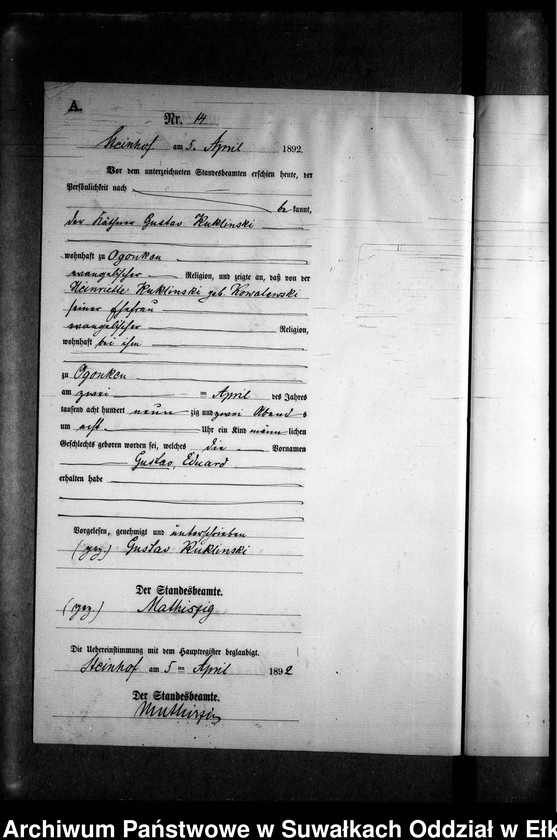 A.
Nr. 14
Steinhof am 5. April 1892.
Vor dem unterzeichneten Standesbeamten erschien heute, der
Persönlichkeit nach
be kannt,
der Käthner Gustav Kuklinski
wohnhaft zu Ogonken
evangelischer Religion, und zeigte an, daß von der
Heinriette Kuklinski geb. Kowalewski
seiner Ehefrau
evangelischer Religion,
wohnhaft bei ihm
zu Ogonken
am zwei ten April des Jahres
tausend acht hundert neun zig und zwei Abend s
um acht Uhr ein Kind männ lichen
Geschlechts geboren worden sei, welches die Vornamen
Gustav, Eduard
erhalten habe
Vorgelesen, genehmigt und unterschrieben
(gez.) Gustav Kuklinski
Der Standesbeamte.
(gez.) Mathiszig
Die Uebereinstimmung mit dem Hauptregister beglaubigt.
Steinhof am 5 ten April 1892
Der Standesbeamte.
Mathiszig
Archiwum Państwowe w Suwałkach Oddział w Ełk